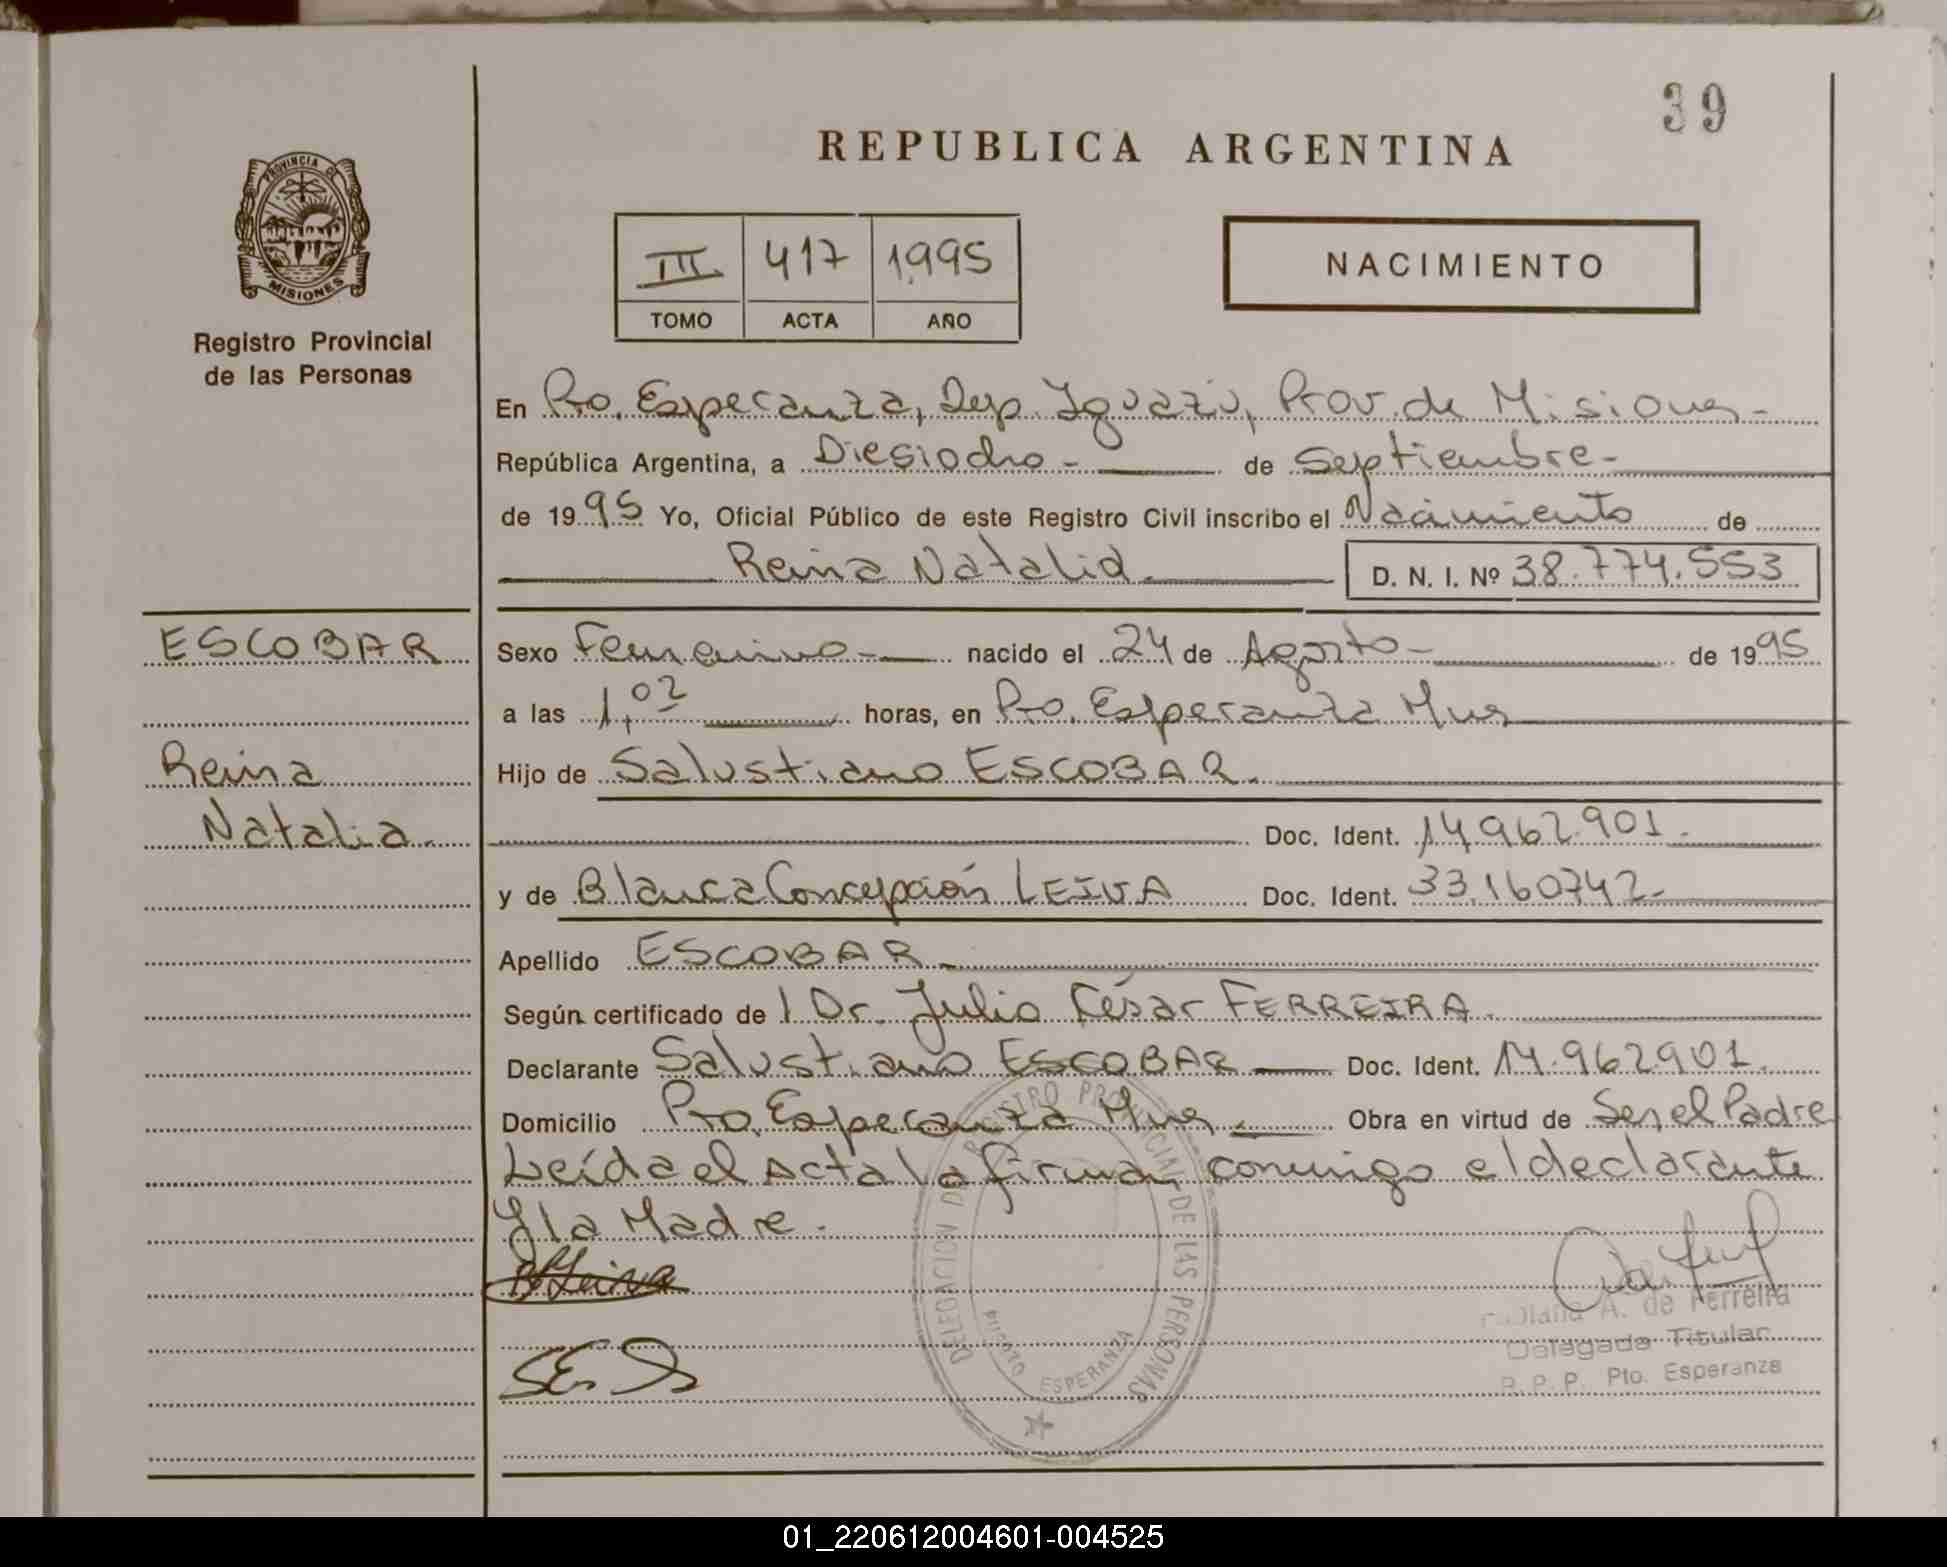 39
REPUBLICA ARGENTINA
PROVINCIA DE
MISIONES
Registro Provincial
de las Personas
III 417 1995
TOMO ACTA AÑO
NACIMIENTO
En Pto. Esperanza, Dep. Iguazú, Prov. de Misiones-
República Argentina, a Diesiocho- de Septiembre-
de 1995 Yo, Oficial Público de este Registro Civil inscribo el Nacimiento de
Reina Natalia D. N. I. Nº 38.774.553
ESCOBAR
Reina
Natalia.
Sexo Femenino- nacido el 24 de Agosto- de 1995
a las 1,02 horas, en Pto. Esperanza Mnes
Hijo de Salustiano ESCOBAR.
Doc. Ident. 14.962.901.
y de Blanca Concepción LEIVA Doc. Ident. 33.160742-
Apellido ESCOBAR-
Según certificado de 1 Dr. Julio César FERREIRA.
Declarante Salustiano ESCOBAR Doc. Ident. 14.962.901.
Domicilio Pto. Esperanza Mnes Obra en virtud de Ser el Padre
Leída el Acta la firman conmigo el declarante
y la Madre.
B Leiva
DELEGACION DEL REGISTRO PROVINCIAL DE LAS PERSONAS
PUERTO ESPERANZA
A. de Ferreira
Delegada Titular
R.P.P. Pto. Esperanza
01_220612004601-004525